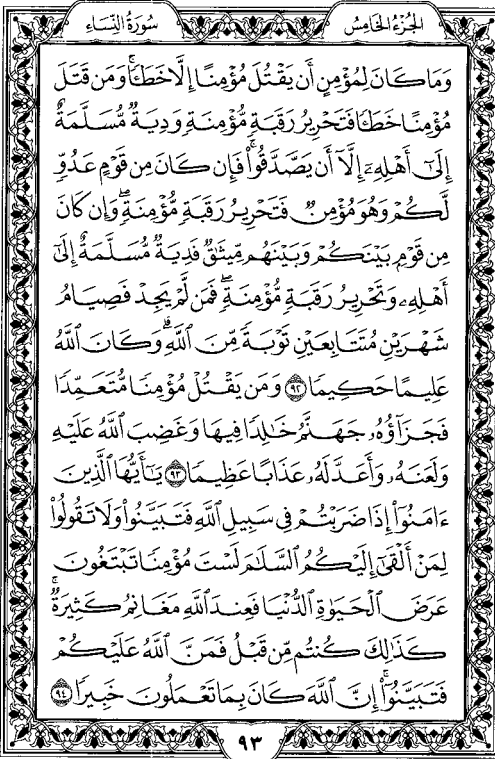 الجزء الخامس
سورة النساء
وَمَا كَانَ لِمُؤْمِنٍ أَن يَقْتُلَ مُؤْمِنًا إِلَّا خَطَـًٔا ۚ وَمَن قَتَلَ
مُؤْمِنًا خَطَـًٔا فَتَحْرِيرُ رَقَبَةٍ مُّؤْمِنَةٍ وَدِيَةٌ مُّسَلَّمَةٌ
إِلَىٰٓ أَهْلِهِۦٓ إِلَّآ أَن يَصَّدَّقُوا۟ ۚ فَإِن كَانَ مِن قَوْمٍ عَدُوٍّ
لَّكُمْ وَهُوَ مُؤْمِنٌ فَتَحْرِيرُ رَقَبَةٍ مُّؤْمِنَةٍ ۖ وَإِن كَانَ
مِن قَوْمٍۭ بَيْنَكُمْ وَبَيْنَهُم مِّيثَـٰقٌ فَدِيَةٌ مُّسَلَّمَةٌ إِلَىٰٓ
أَهْلِهِۦ وَتَحْرِيرُ رَقَبَةٍ مُّؤْمِنَةٍ ۖ فَمَن لَّمْ يَجِدْ فَصِيَامُ
شَهْرَيْنِ مُتَتَابِعَيْنِ تَوْبَةً مِّنَ ٱللَّهِ ۗ وَكَانَ ٱللَّهُ
عَلِيمًا حَكِيمًا ٩٢ وَمَن يَقْتُلْ مُؤْمِنًا مُّتَعَمِّدًا
فَجَزَآؤُهُۥ جَهَنَّمُ خَـٰلِدًا فِيهَا وَغَضِبَ ٱللَّهُ عَلَيْهِ
وَلَعَنَهُۥ وَأَعَدَّ لَهُۥ عَذَابًا عَظِيمًا ٩٣ يَـٰٓأَيُّهَا ٱلَّذِينَ
ءَامَنُوٓا۟ إِذَا ضَرَبْتُمْ فِى سَبِيلِ ٱللَّهِ فَتَبَيَّنُوا۟ وَلَا تَقُولُوا۟
لِمَنْ أَلْقَىٰٓ إِلَيْكُمُ ٱلسَّلَـٰمَ لَسْتَ مُؤْمِنًا تَبْتَغُونَ
عَرَضَ ٱلْحَيَوٰةِ ٱلدُّنْيَا فَعِندَ ٱللَّهِ مَغَانِمُ كَثِيرَةٌ ۚ
كَذَٰلِكَ كُنتُم مِّن قَبْلُ فَمَنَّ ٱللَّهُ عَلَيْكُمْ
فَتَبَيَّنُوٓا۟ ۚ إِنَّ ٱللَّهَ كَانَ بِمَا تَعْمَلُونَ خَبِيرًا ٩٤
٩٣